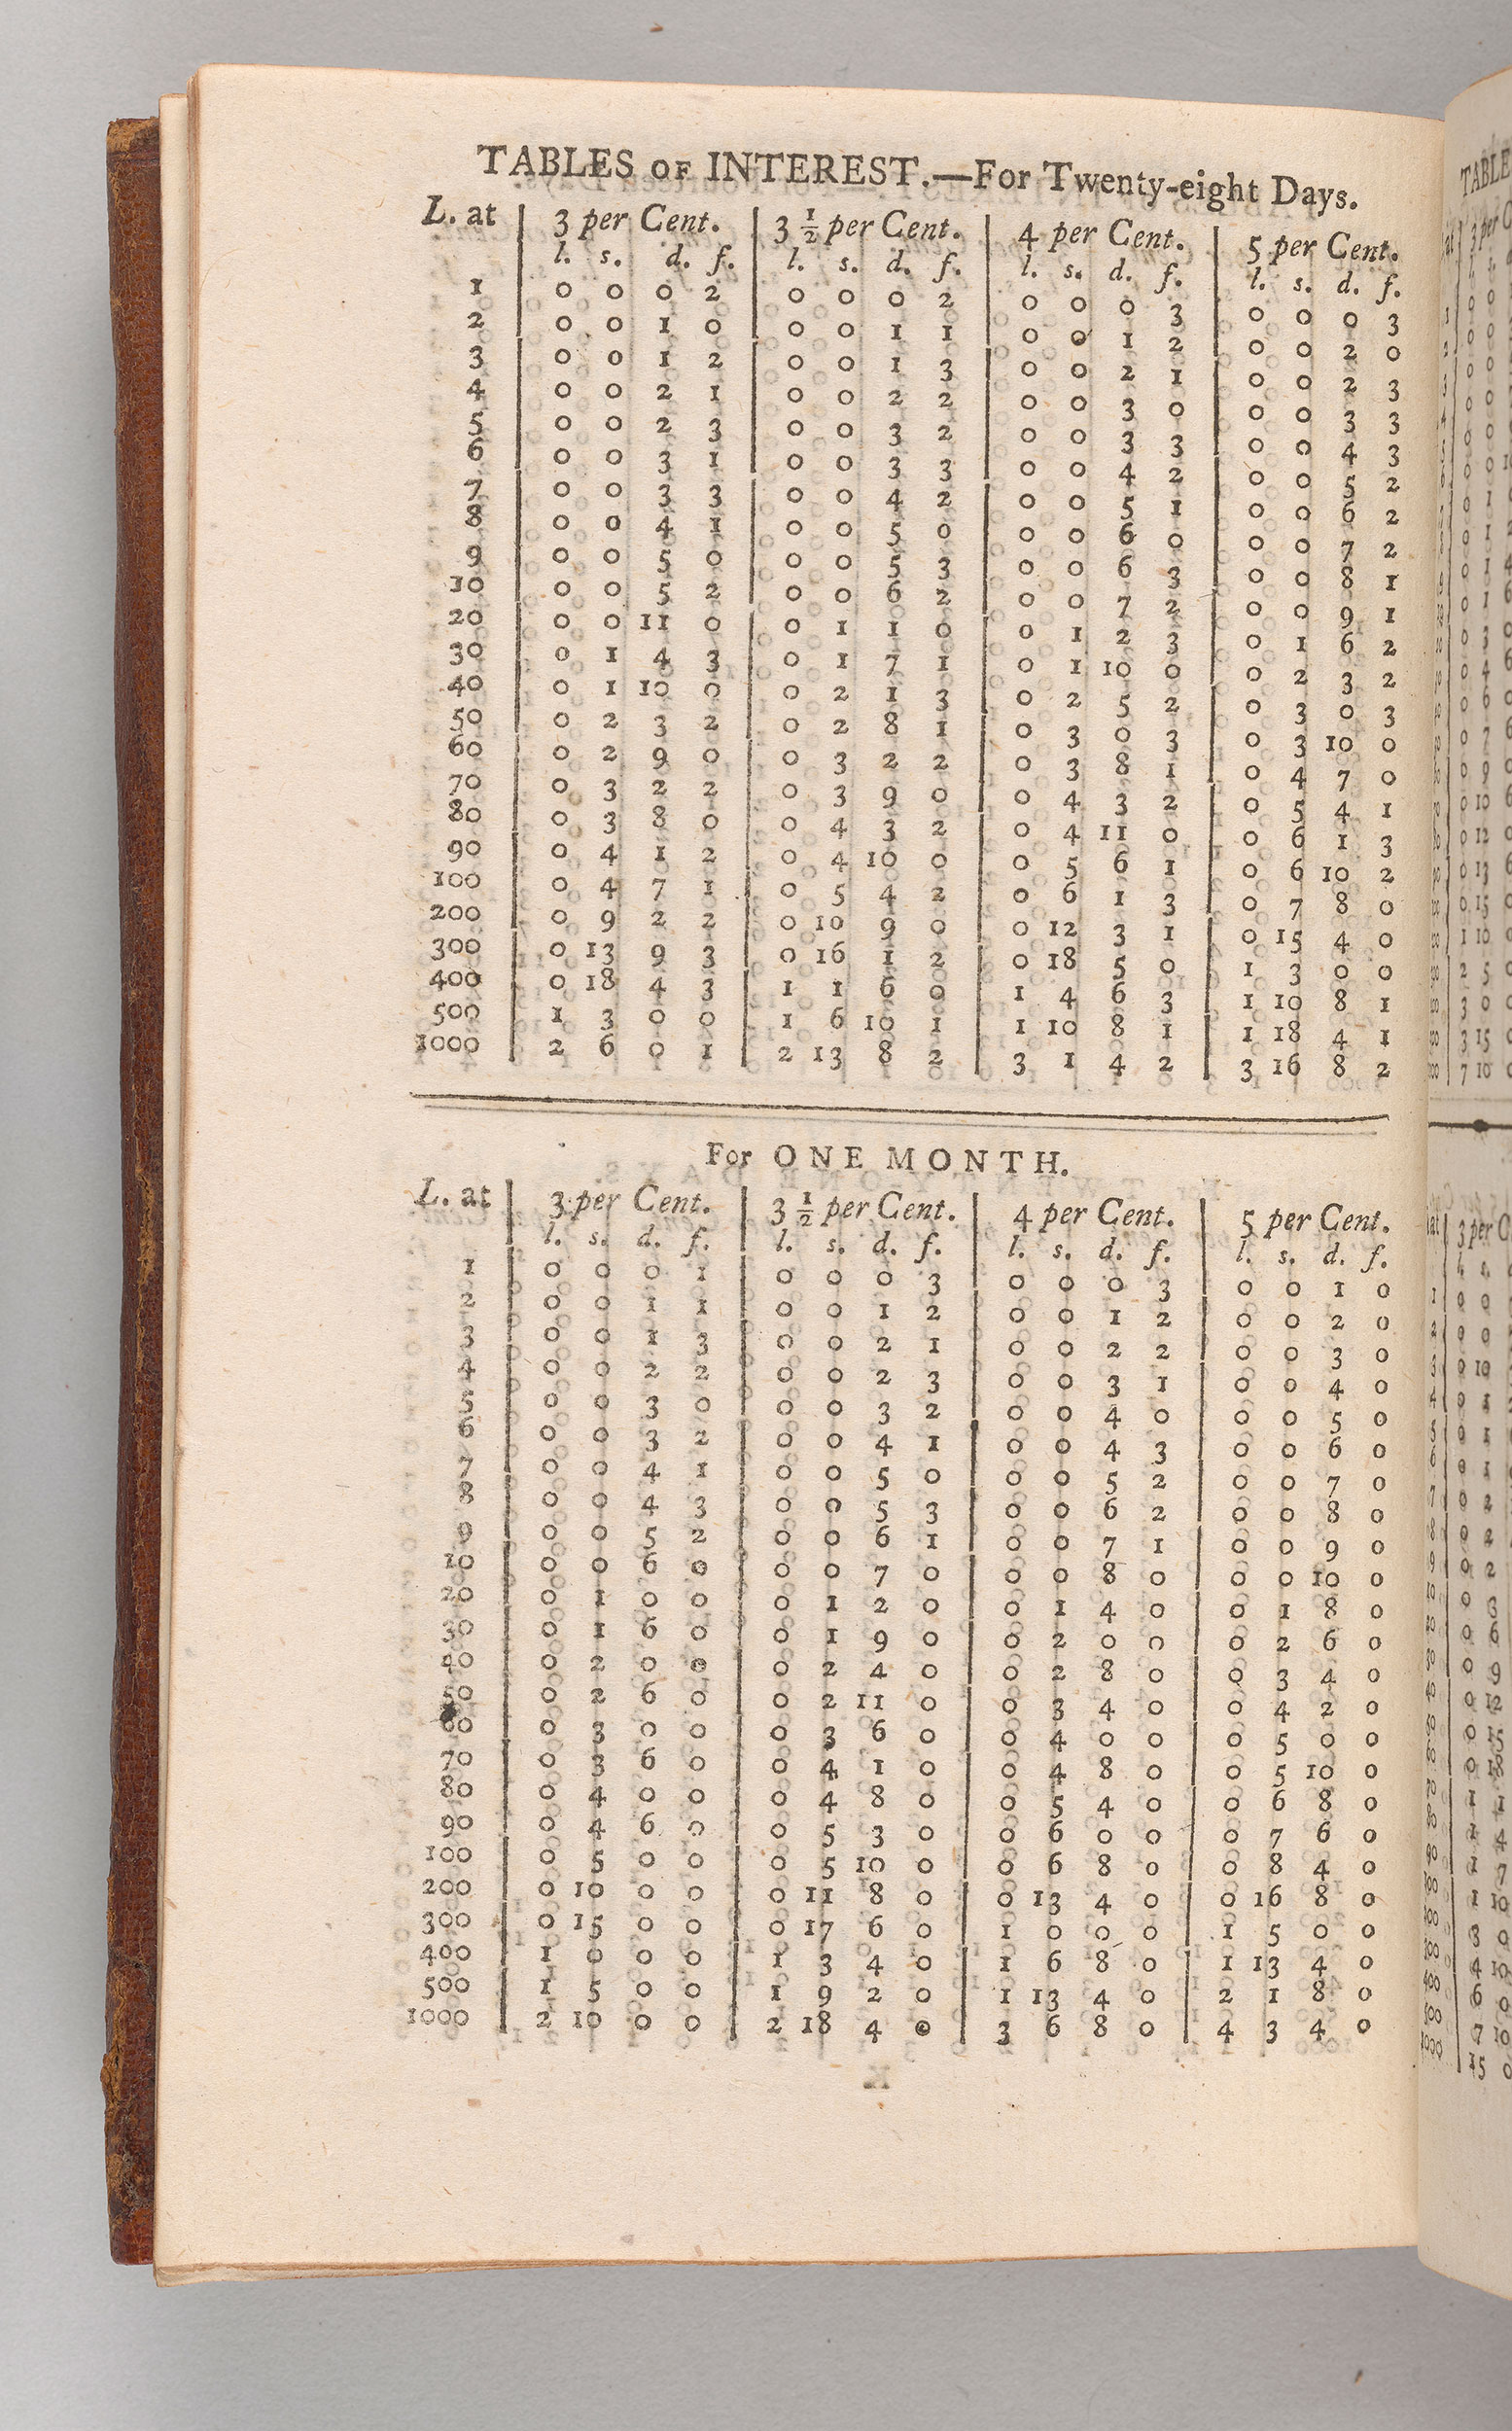 TABLES OF INTEREST.—For Twenty-eight Days.
L. at 3 per Cent. 3 ½ per Cent. 4 per Cent. 5 per Cent.
l. s. d. f. l. s. d. f. l. s. d. f. l. s. d. f.
1 0 0 0 2 0 0 0 2 0 0 0 3 0 0 0 3
2 0 0 1 0 0 0 1 1 0 0 1 2 0 0 2 0
3 0 0 1 2 0 0 1 3 0 0 2 1 0 0 2 3
4 0 0 2 1 0 0 2 2 0 0 3 0 0 0 3 3
5 0 0 2 3 0 0 3 2 0 0 3 3 0 0 4 3
6 0 0 3 1 0 0 3 3 0 0 4 2 0 0 5 2
7 0 0 3 3 0 0 4 2 0 0 5 1 0 0 6 2
8 0 0 4 1 0 0 5 0 0 0 6 0 0 0 7 2
9 0 0 5 0 0 0 5 3 0 0 6 3 0 0 8 1
10 0 0 5 2 0 0 6 2 0 0 7 2 0 0 9 1
20 0 0 11 0 0 1 1 0 0 1 2 3 0 1 6 2
30 0 1 4 3 0 1 7 1 0 1 10 0 0 2 3 2
40 0 1 10 0 0 2 1 3 0 2 5 2 0 3 0 3
50 0 2 3 2 0 2 8 1 0 3 0 3 0 3 10 0
60 0 2 9 0 0 3 2 2 0 3 8 1 0 4 7 0
70 0 3 2 2 0 3 9 0 0 4 3 2 0 5 4 1
80 0 3 8 0 0 4 3 2 0 4 11 0 0 6 1 3
90 0 4 1 2 0 4 10 0 0 5 6 1 0 6 10 2
100 0 4 7 1 0 5 4 2 0 6 1 3 0 7 8 0
200 0 9 2 2 0 10 9 0 0 12 3 1 0 15 4 0
300 0 13 9 3 0 16 1 2 0 18 5 0 1 3 0 0
400 0 18 4 3 1 1 6 0 1 4 6 3 1 10 8 1
500 1 3 0 0 1 6 10 1 1 10 8 1 1 18 4 1
1000 2 6 0 1 2 13 8 2 3 1 4 2 3 16 8 2
For ONE MONTH.
L. at 3 per Cent. 3 ½ per Cent. 4 per Cent. 5 per Cent.
l. s. d. f. l. s. d. f. l. s. d. f. l. s. d. f.
1 0 0 0 1 0 0 0 3 0 0 0 3 0 0 1 0
2 0 0 1 1 0 0 1 2 0 0 1 2 0 0 2 0
3 0 0 1 3 0 0 2 1 0 0 2 2 0 0 3 0
4 0 0 2 2 0 0 2 3 0 0 3 1 0 0 4 0
5 0 0 3 0 0 0 3 2 0 0 4 0 0 0 5 0
6 0 0 3 2 0 0 4 1 0 0 4 3 0 0 6 0
7 0 0 4 1 0 0 5 0 0 0 5 2 0 0 7 0
8 0 0 4 3 0 0 5 3 0 0 6 2 0 0 8 0
9 0 0 5 2 0 0 6 1 0 0 7 1 0 0 9 0
10 0 0 6 0 0 0 7 0 0 0 8 0 0 0 10 0
20 0 1 0 0 0 1 2 0 0 1 4 0 0 1 8 0
30 0 1 6 0 0 1 9 0 0 2 0 0 0 2 6 0
40 0 2 0 0 0 2 4 0 0 2 8 0 0 3 4 0
50 0 2 6 0 0 2 11 0 0 3 4 0 0 4 2 0
60 0 3 0 0 0 3 6 0 0 4 0 0 0 5 0 0
70 0 3 6 0 0 4 1 0 0 4 8 0 0 5 10 0
80 0 4 0 0 0 4 8 0 0 5 4 0 0 6 8 0
90 0 4 6 0 0 5 3 0 0 6 0 0 0 7 6 0
100 0 5 0 0 0 5 10 0 0 6 8 0 0 8 4 0
200 0 10 0 0 0 11 8 0 0 13 4 0 0 16 8 0
300 0 15 0 0 0 17 6 0 1 0 0 0 1 5 0 0
400 1 0 0 0 1 3 4 0 1 6 8 0 1 13 4 0
500 1 5 0 0 1 9 2 0 1 13 4 0 2 1 8 0
1000 2 10 0 0 2 18 4 0 3 6 8 0 4 3 4 0